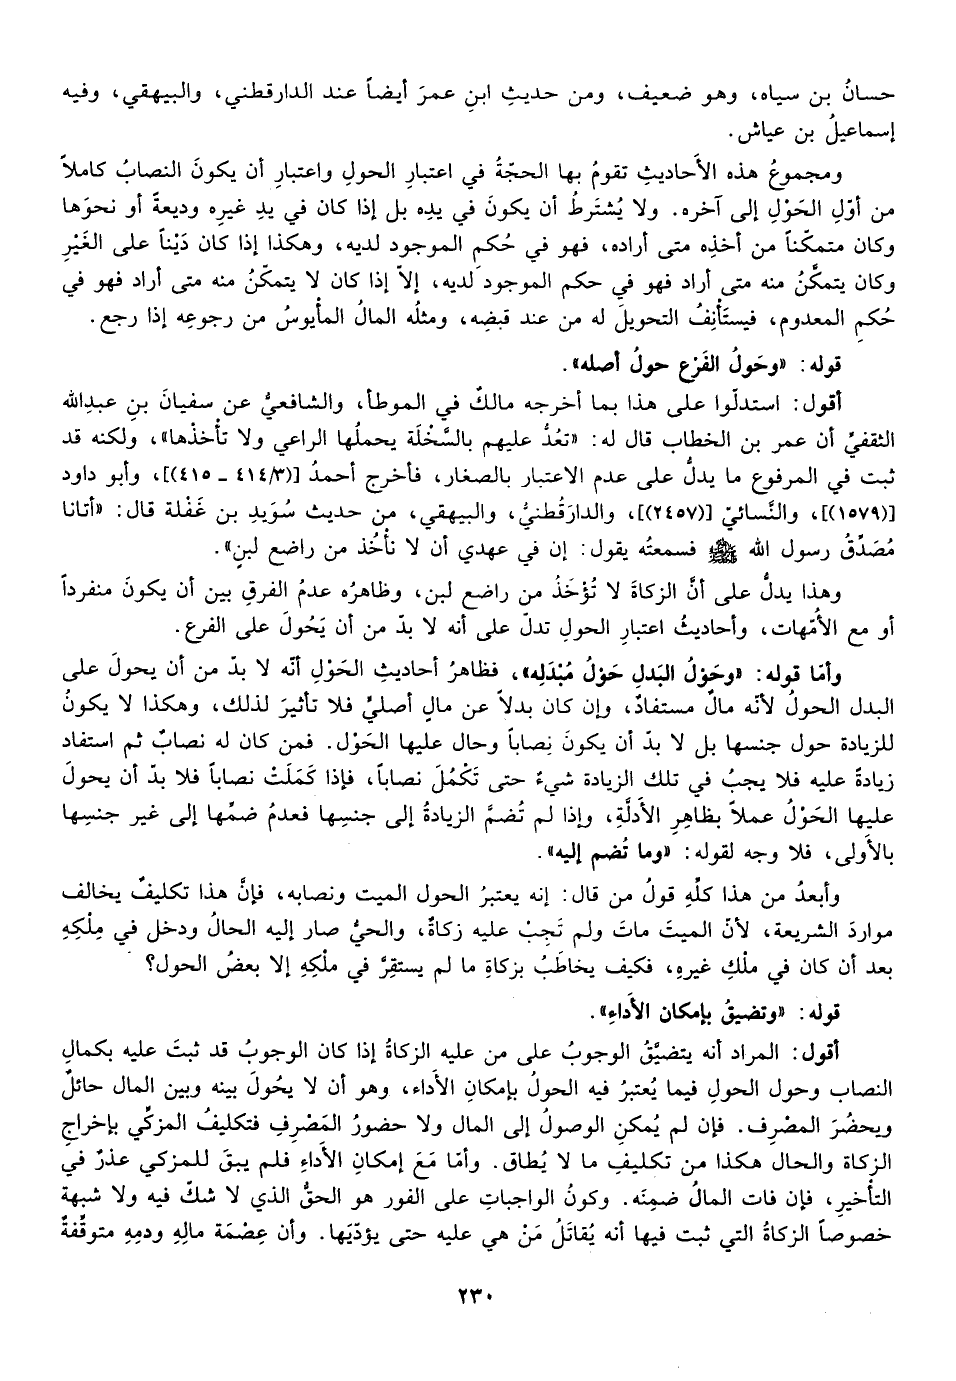 حسانُ بن سياه، وهو ضعيف، ومن حديثِ ابنِ عمرَ أيضاً عند الدارقطني، والبيهقي، وفيه
إسماعيلُ بن عياش.
ومجموعُ هذه الأحاديثِ تقومُ بها الحجّةُ في اعتبارِ الحولِ واعتبارِ أن يكونَ النصابُ كاملاً
من أوّلِ الحَوْلِ إلى آخره. ولا يُشتَرطُ أن يكونَ في يدِه بل إذا كان في يدِ غيرِه وديعةً أو نحوَها
وكان متمكّناً من أخذِه متى أراده، فهو في حُكمِ الموجود لديه، وهكذا إذا كان دَيْناً على الغَيْرِ
وكان يتمكّنُ منه متى أراد فهو في حكم الموجود لديه، إلاّ إذا كان لا يتمكنُ منه متى أراد فهو في
حُكمِ المعدوم، فيستَأنِفُ التحويلَ له من عند قبضِه، ومثلُه المالُ المأيوسُ من رجوعِه إذا رجع.
قوله: «وحَولُ الفَرْع حولُ أصله».
أقول: استدلّوا على هذا بما أخرجه مالكٌ في الموطأ، والشافعيُّ عن سفيانَ بنِ عبدِالله
الثقفيِّ أن عمر بن الخطاب قال له: «تعُدُّ عليهم بالسَّخْلَة يحملُها الراعي ولا تأخذها»، ولكنه قد
ثبت في المرفوع ما يدلُّ على عدم الاعتبار بالصغار، فأخرج أحمدُ [(٣/ ٤١٤ ـ ٤١٥)]، وأبو داود
[(١٥٧٩)]، والنَّسائيّ [(٢٤٥٧)]، والدارَقُطنيُّ، والبيهقي، من حديث سُوَيدِ بن غَفْلة قال: «أتانا
مُصَدِّقُ رسول الله ﷺ فسمعتُه يقول: إن في عهدي أن لا نأخُذ من راضع لبنٍ».
وهذا يدلُّ على أنَّ الزكاةَ لا تُؤْخَذُ من راضع لبن، وظاهرُه عدمُ الفرقِ بين أن يكونَ منفرداً
أو مع الأُمّهات، وأحاديثُ اعتبار الحولِ تدلّ على أنه لا بدّ من أن يَحُولَ على الفرع.
وأمّا قوله: «وحَوْلُ البَدلِ حَوْلُ مُبْدَلِه»، فظاهرُ أحاديثِ الحَوْلِ أنّه لا بدّ من أن يحولَ على
البدل الحولُ لأنّه مالٌ مستفادٌ، وإن كان بدلاً عن مالٍ أصليٍّ فلا تأثيرَ لذلك، وهكذا لا يكونُ
للزيادة حول جنسها بل لا بدّ أن يكونَ نِصاباً وحال عليها الحَوْل. فمن كان له نصابٌ ثم استفاد
زيادةً عليه فلا يجبُ في تلك الزيادة شيءٌ حتى تَكْمُلَ نصاباً، فإذا كَمَلَتْ نصاباً فلا بدّ أن يحولَ
عليها الحَوْلُ عملاً بظاهِرِ الأدلَّةِ، وإذا لم تُضمَّ الزيادةُ إلى جنسِها فعدمُ ضمِّها إلى غير جنسِها
بالأَولى، فلا وجه لقوله: «وما تُضم إليه».
وأبعدُ من هذا كلِّهِ قولُ من قال: إنه يعتبرُ الحول الميت ونصابه، فإنَّ هذا تكليفٌ يخالف
مواردَ الشريعة، لأنّ الميتَ ماتَ ولم تَجِبْ عليه زكاةٌ، والحيُّ صار إليه الحالُ ودخل في مِلْكِهِ
بعد أن كان في ملْكِ غيرِهِ، فكيف يخاطَبُ بزكاةِ ما لم يستقِرَّ في ملْكِهِ إلا بعضُ الحول؟
قوله: «وتضيقُ بإمكان الأَداءِ».
أقول: المراد أنه يتضيَّقُ الوجوبُ على من عليه الزكاةُ إذا كان الوجوبُ قد ثبتَ عليه بكمالِ
النصاب وحول الحولِ فيما يُعتبرُ فيه الحولُ بإمكانِ الأداء، وهو أن لا يحُولَ بينه وبين المال حائلٌ
ويحضُرَ المصْرِف. فإن لم يُمكنِ الوصولُ إلى المال ولا حضورُ المَصْرِفِ فتكليفُ المزكّي بإخراجِ
الزكاة والحال هكذا من تكليفِ ما لا يُطاق. وأمّا مَعَ إمكانِ الأداءِ فلم يبقَ للمزكي عذرٌ في
التأخيرِ، فإن فات المالُ ضمِنَه. وكونُ الواجباتِ على الفور هو الحقُّ الذي لا شكّ فيه ولا شبهة
خصوصاً الزكاةُ التي ثبت فيها أنه يُقاتَلُ مَنْ هي عليه حتى يؤدّيَها. وأن عِصْمَة مالِهِ ودمِهِ متوقِّفةٌ
٢٣٠